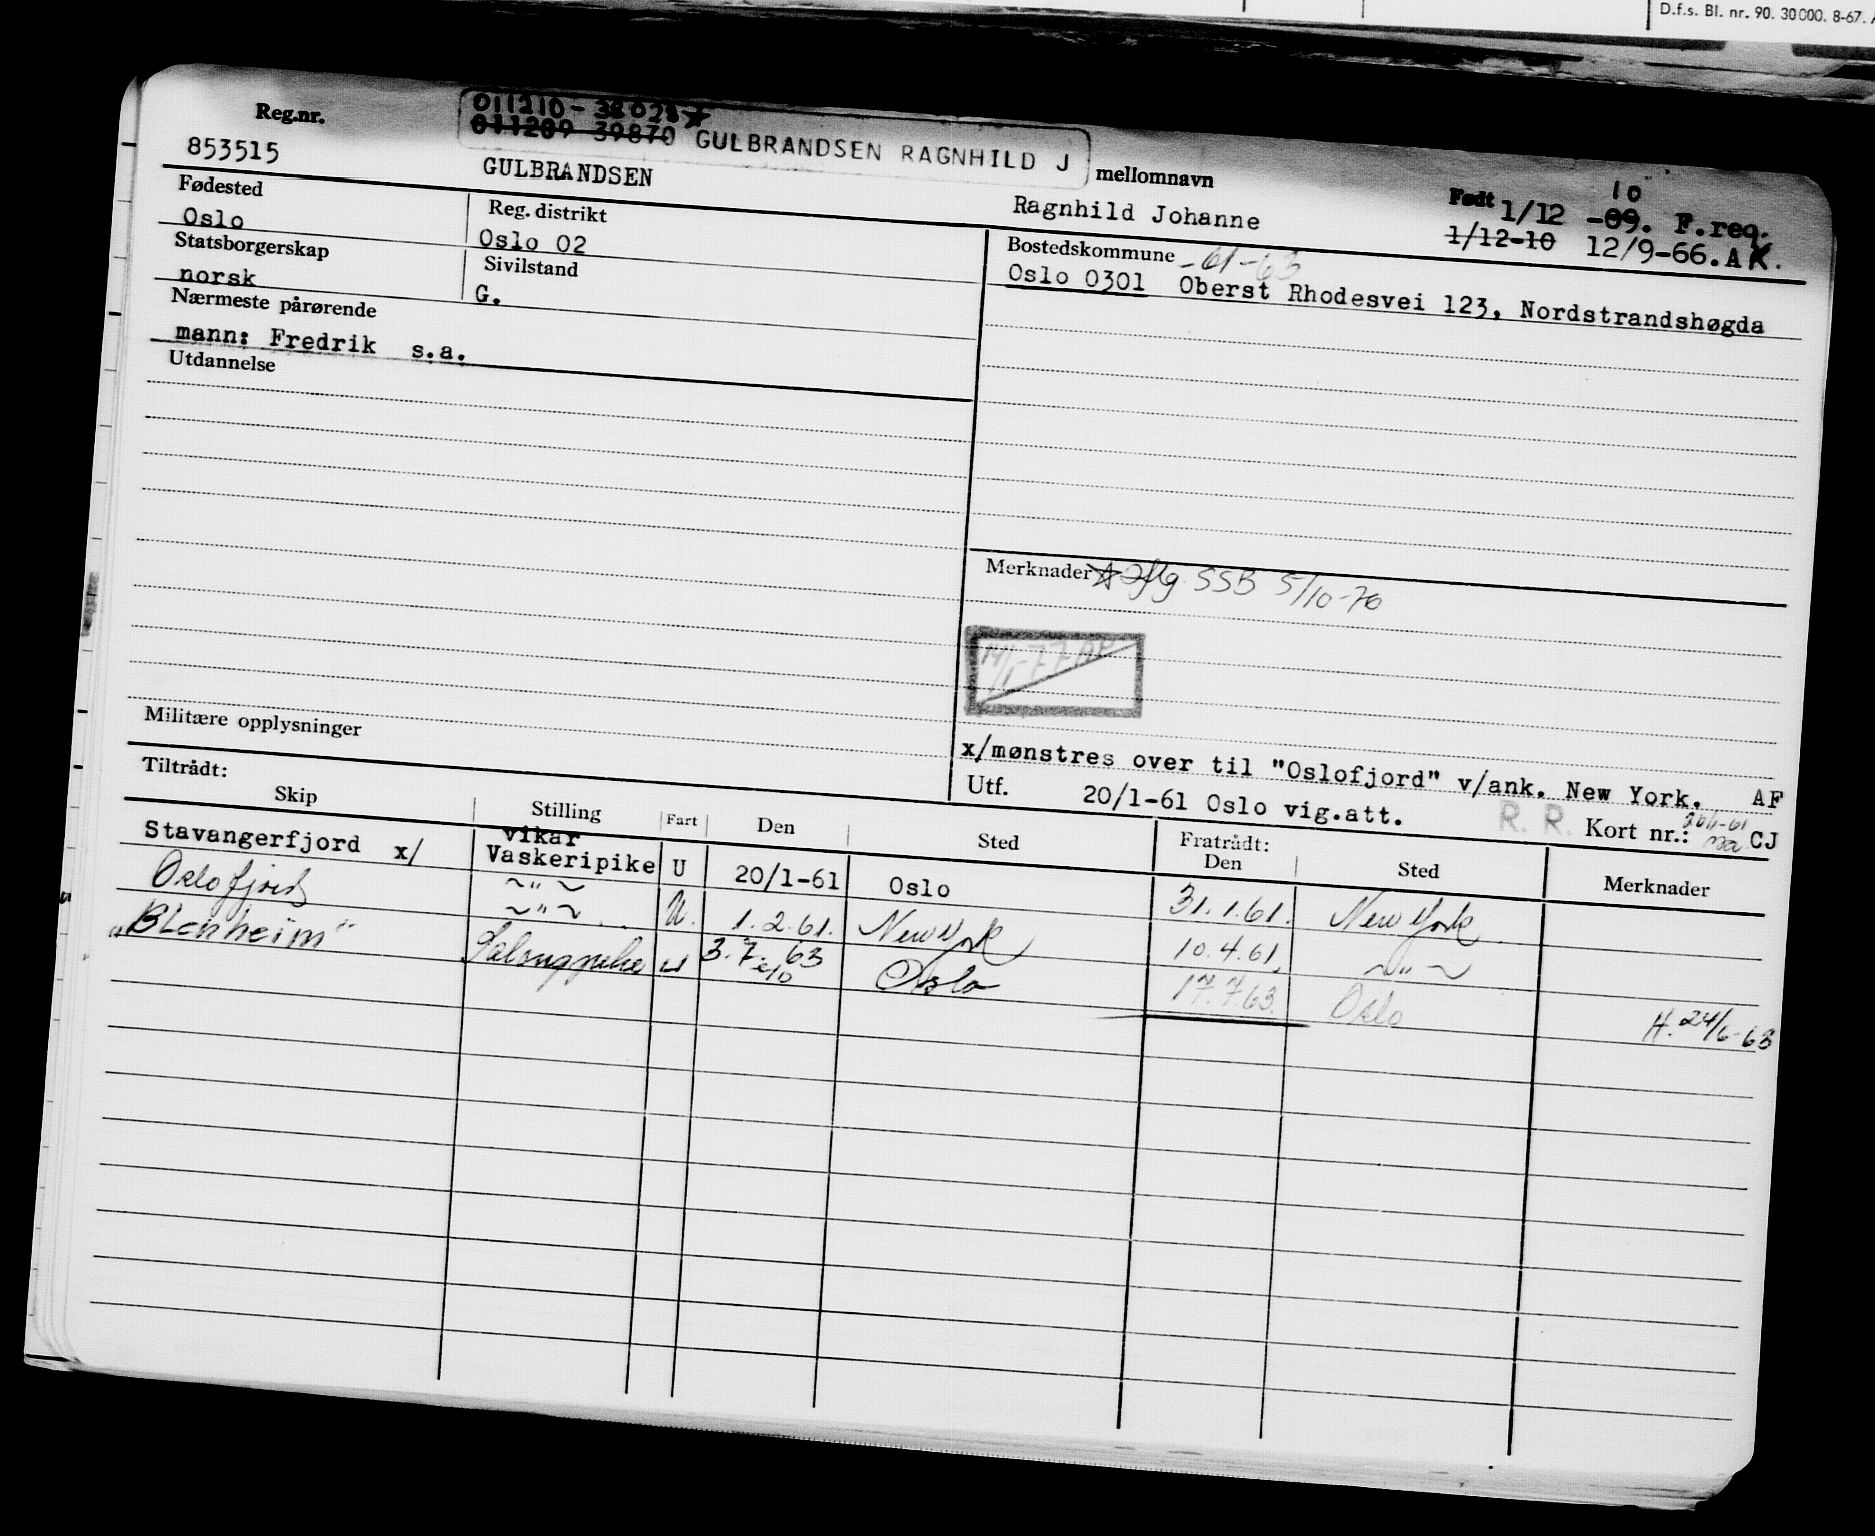 D.f.s. Bl. nr. 90. 30000. 8-67.
Reg.nr.
853515
011209 39870 GULBRANDSEN RAGNHILD J
GULBRANDSEN
mellomnavn
Ragnhild Johanne
10
Født 1/12 -09. F.reg.
1/12-10 12/9-66. AK.
Fødested
Oslo
Reg. distrikt
Oslo 02
Statsborgerskap
norsk
Sivilstand
G.
Nærmeste pårørende
mann: Fredrik s.a.
Utdannelse
Bostedskommune -61-63
Oslo 0301 Oberst Rhodesvei 123, Nordstrandshøgda
Merknader iflg SSB 5/10-70
Militære opplysninger
x/mønstres over til "Oslofjord" v/ank. New York. AF
Utf. 20/1-61 Oslo vig.att.
R. R. Kort nr.: CJ
Tiltrådt:
Skip Stilling Fart Den Sted Fratrådt: Den Sted Merknader
Stavangerfjord x/ vikar Vaskeripike U 20/1-61 Oslo 31.1.61. New York
Oslofjord ~"~ U. 1.2.61. New York 10.4.61. ~"~
"Blenheim" ~"~ Salongpike U 3.7.63 Oslo 17.7.63. Oslo H. 24/6-63